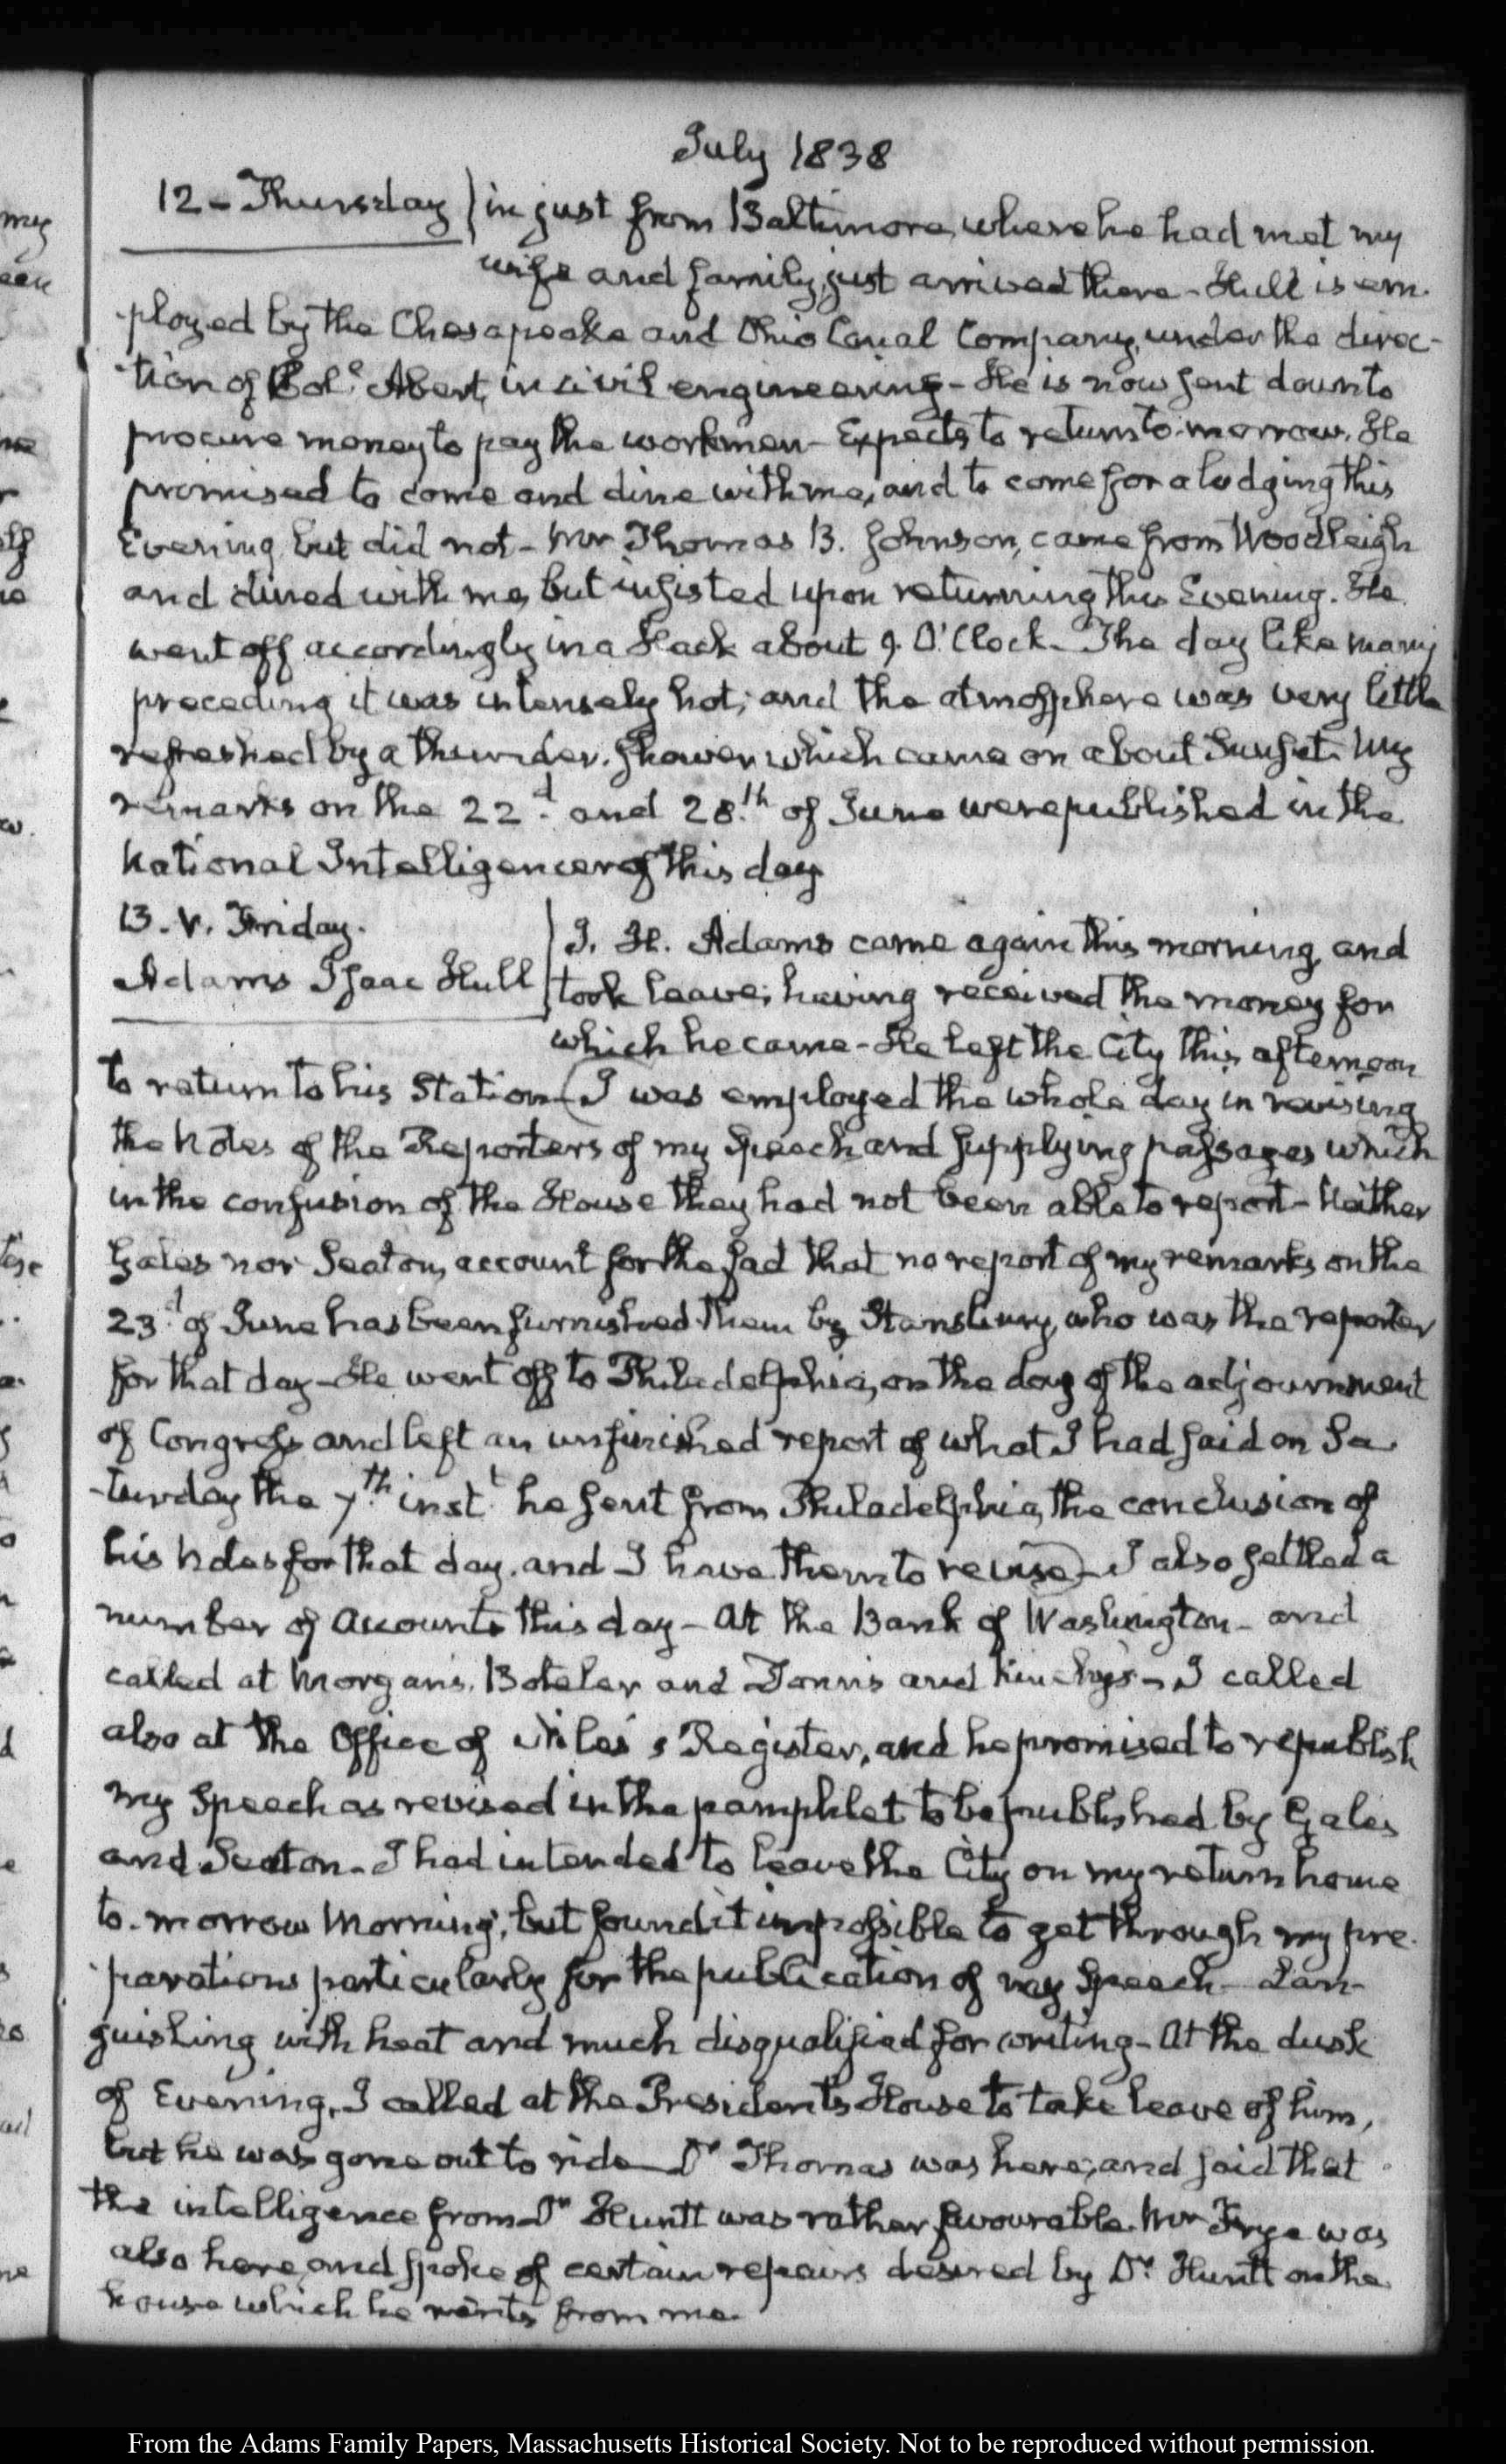 July 1838
12 - Thursday
in just from Baltimore, where he had met my
wife and family, just arrived there - Hull is em-
ployed by the Chesapeake and Ohio Canal Company, under the direc-
tion of Col.l Abert, in civil engineering - He is now sent down to
procure money to pay the workmen - Expects to return to-morrow. He
promised to come and dine with me, and to come for a lodging this
Evening, but did not - Mr Thomas B. Johnson, came from Woodleigh
and dined with me, but insisted upon returning this Evening. He
went off accordingly in a Hack about 9. O'Clock - The day like many
preceding it was intensely hot; and the atmosphere was very little
refreshed by a thunder-shower which came on about Sunset. My
remarks on the 22.d and 28.th of June were published in the
National Intelligencer of this day
13. V. Friday.
Adams Isaac Hull
I. H. Adams came again this morning, and
took leave; having received the money for
which he came - He left the City this afternoon
to return to his Station (I was employed the whole day in revising
the Notes of the Reporters of my Speech and supplying passages which
in the confusion of the House they had not been able to report - Neither
Gales nor Seaton, account for the fact that no report of my remarks on the
23.d of June has been furnished them by Stansbury, who was the reporter
for that day - He went off to Philadelphia, on the day of the adjournment
of Congress and left an unfinished report of what I had said on Sa-
-turday the 7.th inst.t he sent from Philadelphia, the conclusion of
his notes for that day, and I have them to revise) - I also settled a
number of Accounts this day - At the Bank of Washington - and
called at Morgan's, Boteler and Donn's and Kinchy's - I called
also at the Office of Niles's Register, and he promised to republish
my Speech as revised in the pamphlet to be published by Gales
and Seaton - I had intended to leave the City on my return home
to-morrow Morning, but found it impossible to get through my pre-
-parations particularly for the publication of my Speech - Lan-
guishing with heat and much disqualified for writing - At the dusk
of Evening, I called at the President's House to take leave of him,
but he was gone out to ride - Dr Thomas was here, and said that
the intelligence from Dr Huntt was rather favourable. Mr Frye was
also here, and spoke of certain repairs desired by Dr Huntt on the
house which he rents from me.
From the Adams Family Papers, Massachusetts Historical Society. Not to be reproduced without permission.